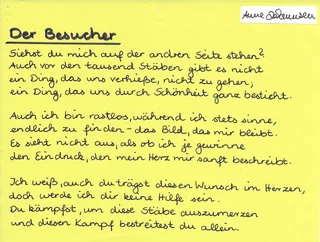 Der Besucher
Siehst du mich auf der andren Seite stehen?
Auch vor den tausend Stäben gibt es nicht
ein Ding, das uns verhieße, nicht zu gehen,
ein Ding, das uns durch Schönheit ganz besticht.
Auch ich bin rastlos, während ich stets sinne,
endlich zu finden - das Bild, das mir bleibt.
Es sieht nicht aus, als ob ich je gewinne
den Eindruck, den mein Herz mir sanft beschreibt.
Ich weiß, auch du trägst diesen Wunsch im Herzen,
doch werde ich dir keine Hilfe sein.
Du kämpfst, um diese Stäbe auszumerzen
und diesen Kampf bestreitest du allein.